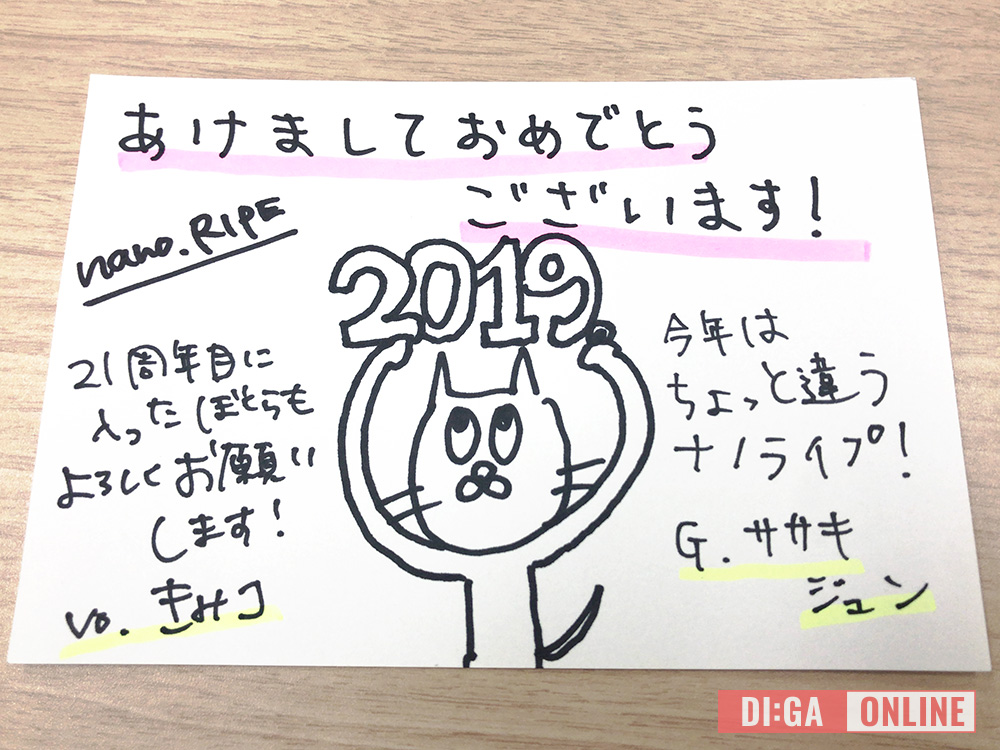 あけましておめでとう
ございます!
nano.RIPE
2019
21周年目に
入ったぼくらも
よろしくお願い
します!
vo. きみコ
今年は
ちょっと違う
ナノライプ!
G. ササキ
ジュン
DI:GA ONLINE